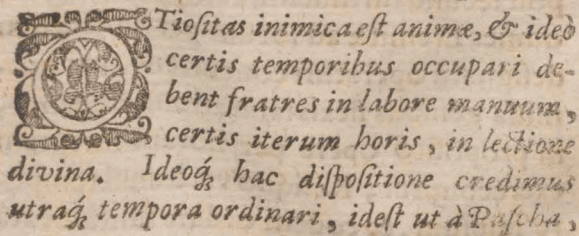 OTiositas inimica est animæ, & ideò
certis temporibus occupari de-
bent fratres in labore manuum,
certis iterum horis, in lectione
divina. Ideoq́; hac dispositione credimus
utraq́; tempora ordinari, idest ut à Pascha,